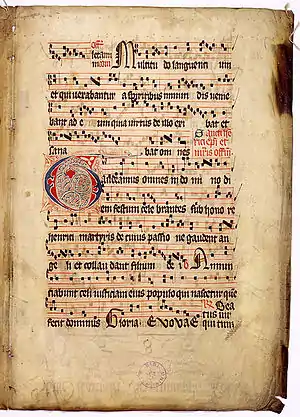 Multitudo languenti um
et qui vexabantur a spiritibus inmun dis venie
bant ad e um quia virtus de illo exi bat et
sana bat om nes
Gaudeamus omnes in do mi no di
em festum cele brantes sub hono re
henrici martyris de cuius passio ne gaudent an
ge li et collau dant filium de i Annun
ciabunt celi iusticiam eius populo qui nascetur que
fecit dominus Gloria Evovae